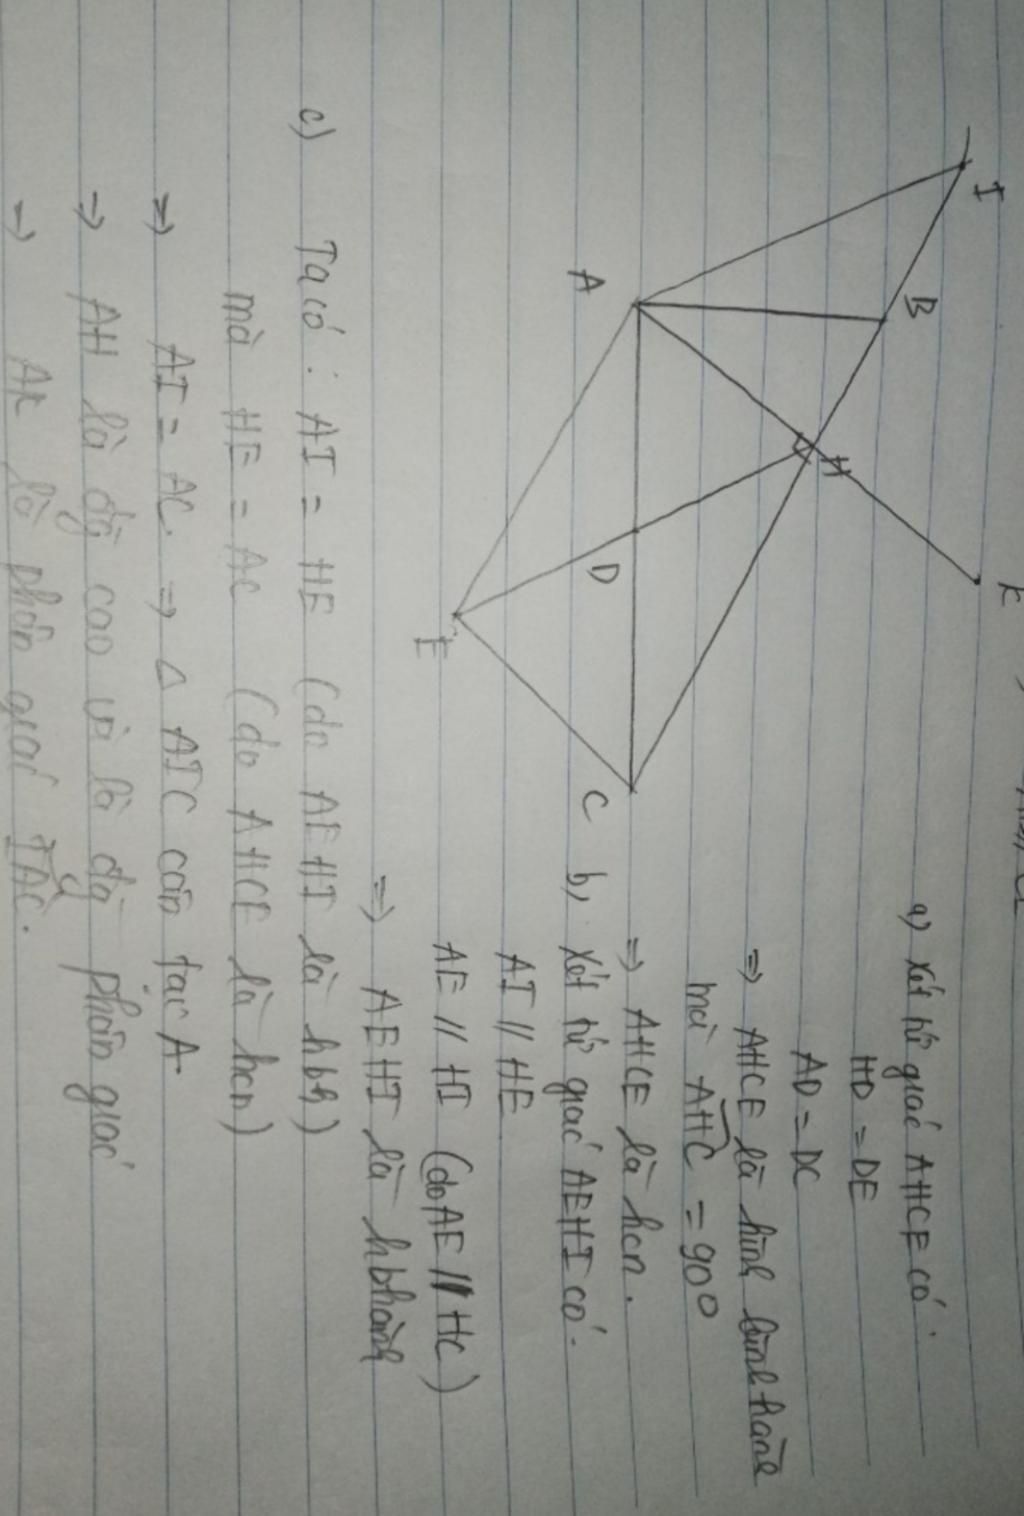 I
B
H
K
A
D
E
C
a) Xét tứ giác AHCE có
HD = DE
AD = DC
=> AHCE là hình bình hành
mà AHC = 90°
=> AHCE là hcn.
b) Xét tứ giác AEHI có.
AI // HE
AE // HI (do AE // HC)
=> AEHI là hbhành
c) Ta có : AI = HE (do AEHI là hbh)
mà HE = AC (do AHCE là hcn)
=> AI = AC. => Δ AIC cân tại A
-> AH là đg cao vì là đg phân giác
-> AK là phân giác IAC.